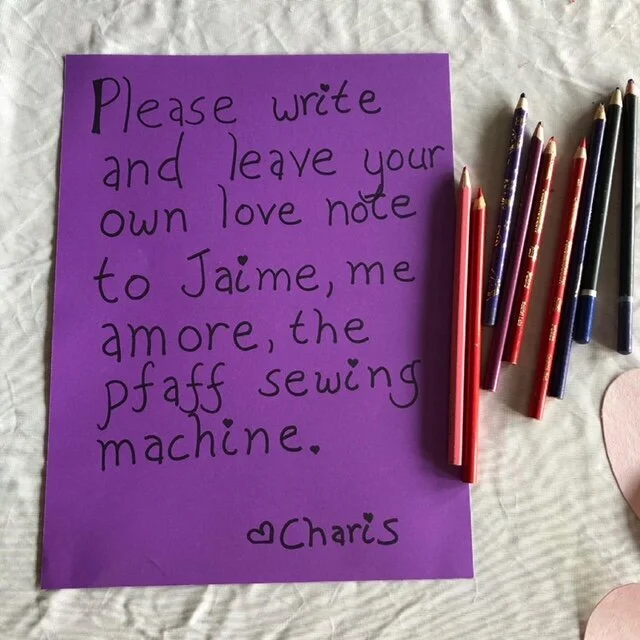 Please write
and leave your
own love note
to Jaime, me
amore, the
pfaff sewing
machine.
♡Charis